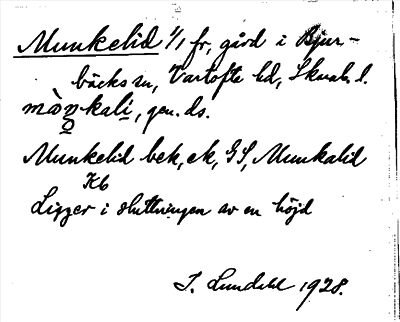 Munkelid 1/1 fr, gård i Bjur-
bäcks sn, Vartofte hd, Skarab. l.
gen. ds.
Munkelid bek, ek, GS, Munkalid
Kb
Ligger i sluttningen av en höjd
I. Lundahl 1928.